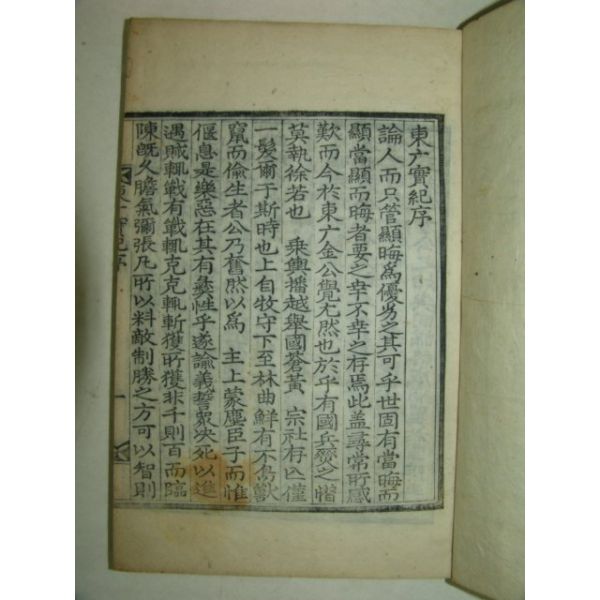 東广實紀序
論人而只管顯晦爲優劣之其可乎世固有當晦而
顯當顯而晦者要之幸不幸之存焉此盖尋常所感
歎而今於東广金公覺尤然也於乎有國兵燹之憯
莫執徐若也 乘輿播越舉國蒼黃 宗社存亾僅
一髮爾于斯時也上自牧守下至林曲鮮有不鳥獸
竄而偸生者公乃奮然以爲 主上蒙塵臣子而惟
偃息是樂惡在其有彛性乎遂諭義誓衆決死以進
遇賊輒戰有戰輒克克輒斬獲所獲非千則百而臨
陳旣久膽氣彌張凡所以料敵制勝之方可以智則
實紀序
一